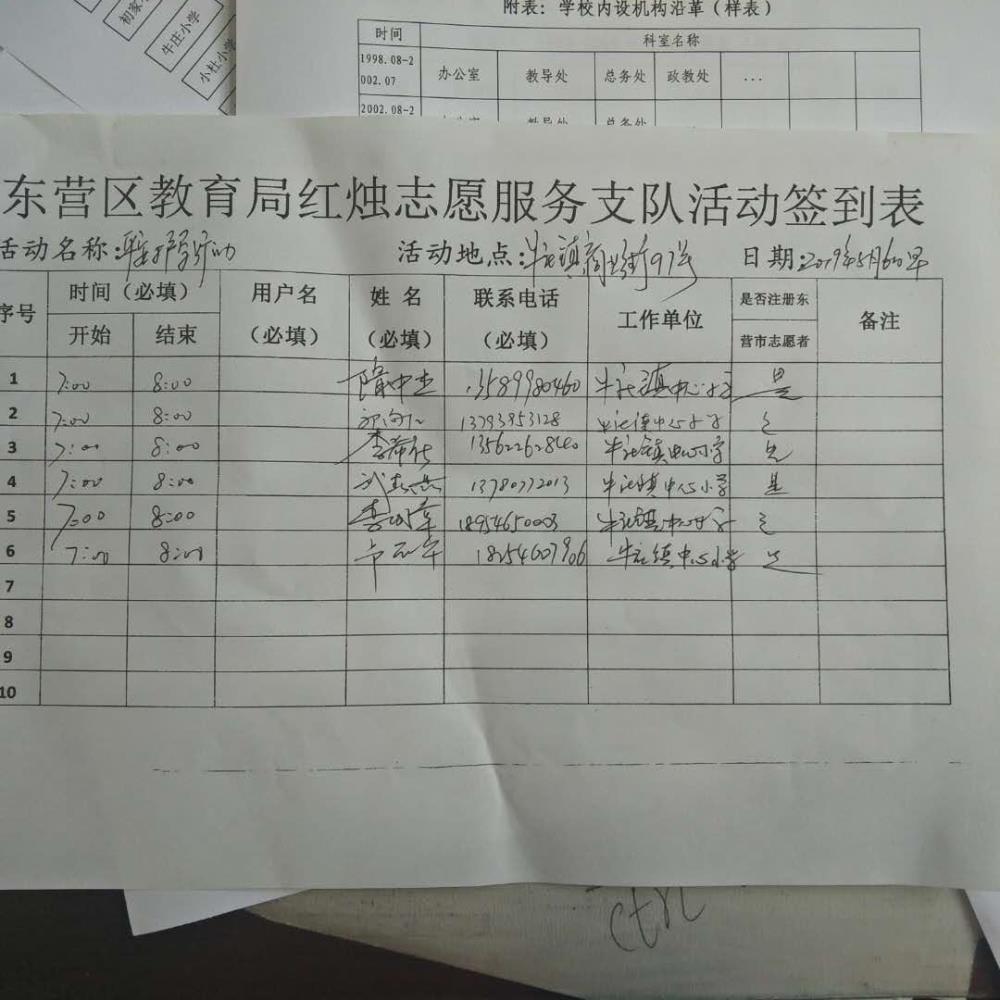 附表：学校内设机构沿革（样表）
牛庄小学
小杜小学
时间 科室名称
1998.08-2002.07 办公室 教导处 总务处 政教处 ...
2002.08-2
东营区教育局红烛志愿服务支队活动签到表
活动名称： 活动地点：牛庄镇商业街97号 日期：2019年5月6日
序号 时间（必填） 用户名（必填） 姓 名（必填） 联系电话（必填） 工作单位 是否注册东营市志愿者 备注
开始 结束
1 7:00 8:00 隋中杰 13589980460 牛庄镇中心小学 是
2 7:00 8:00 13793953128 牛庄镇中心小学 是
3 7:00 8:00 李希 13562262840 牛庄镇中心小学 是
4 7:00 8:00 武 13780772013 牛庄镇中心小学 是
5 7:00 8:00 李 18954650003 牛庄镇中心小学 是
6 7:00 8:00 18254607906 牛庄镇中心小学 是
7
8
9
10
ctrl